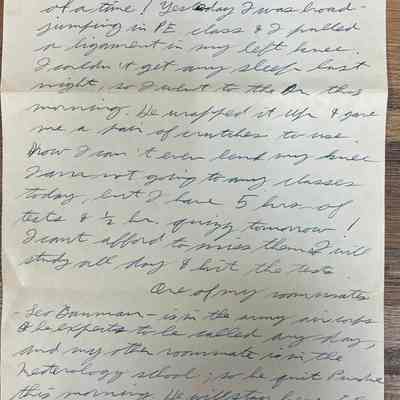 of a time! Yesterday I was broad-
jumping in PE class & I pulled
a ligament in my left knee.
I couldn't get any sleep last
night, so I went to the Dr this
morning. He wrapped it up & gave
me a pair of crutches to use.
Now I can't even bend my knee
I am not going to any classes
today, but I have 5 hrs. of
tests & ½ hr. quizz tomorrow!
I cant afford to miss them I will
study all day & hit the tests.
One of my roommates
Leo Bauman - is in the army air corps
& he expects to be called any day,
and my other roommate is in the
Meterology school; so he quit Purdue
this morning. He will stay here